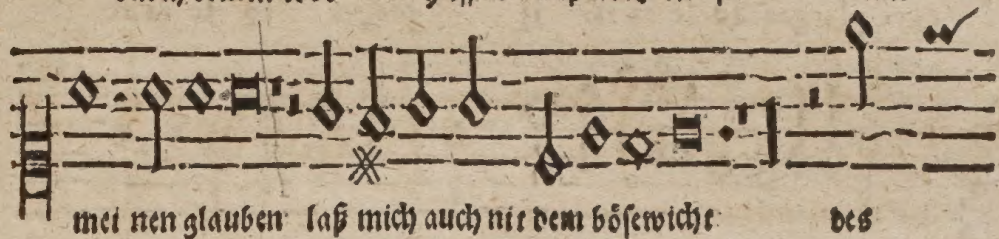 mei nen glauben laß mich auch nit dem bösewicht des